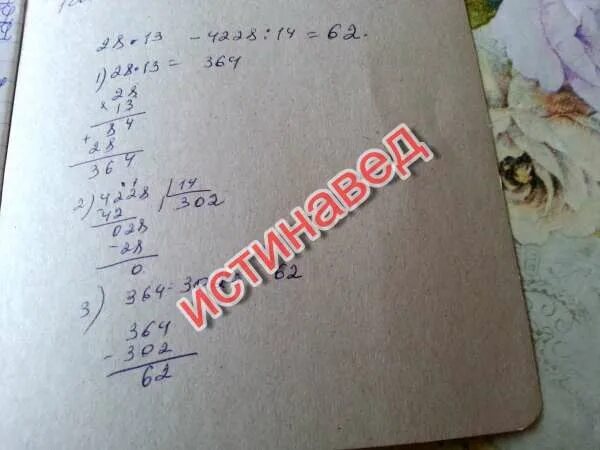 28 · 13 - 4228 : 14 = 62.
1) 28 · 13 = 364
28
× 13
+ 84
28
364
2) 4228 | 14
42 302
028
- 28
0
3) 364 - 62
364
- 302
62
истинавед